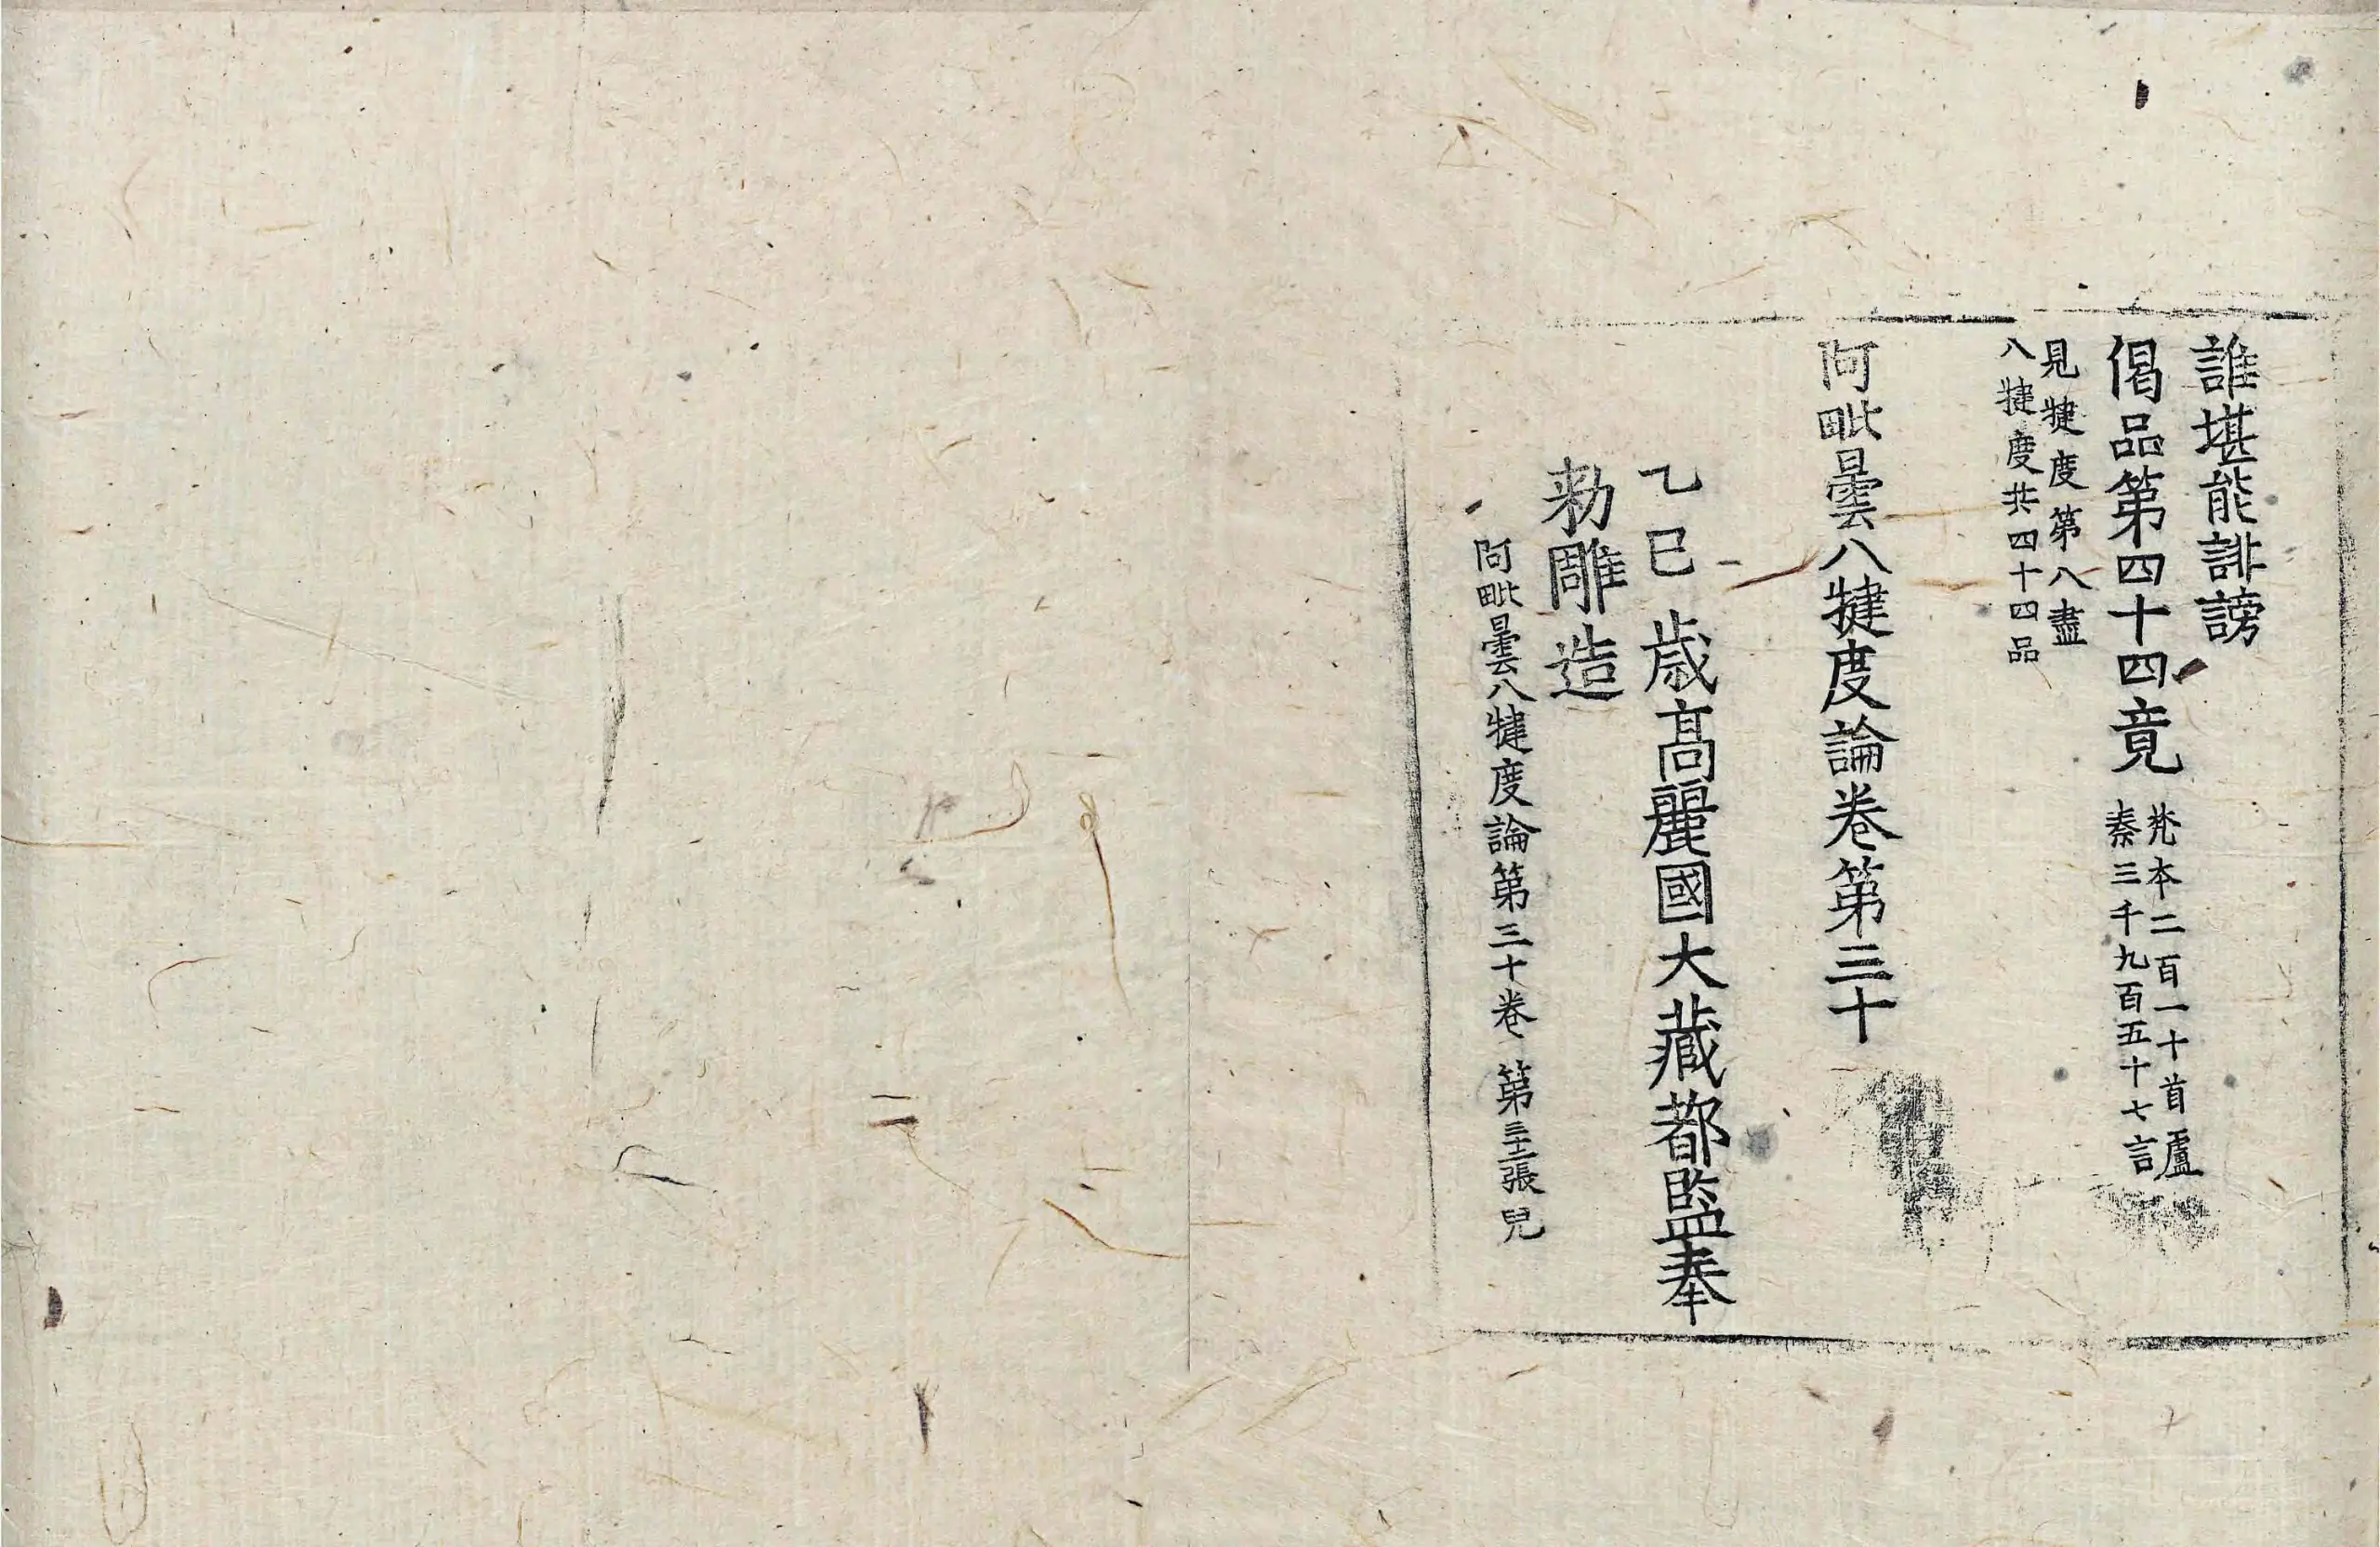 誰堪能誹謗
偈品第四十四竟 梵本二百一十首盧
秦三千九百五十七言
見揵度第八盡
八揵度共四十四品
阿毗曇八犍度論卷第三十
乙巳歲高麗國大藏都監奉
勅雕造
阿毗曇八犍度論第三十卷 第三十二張 兒